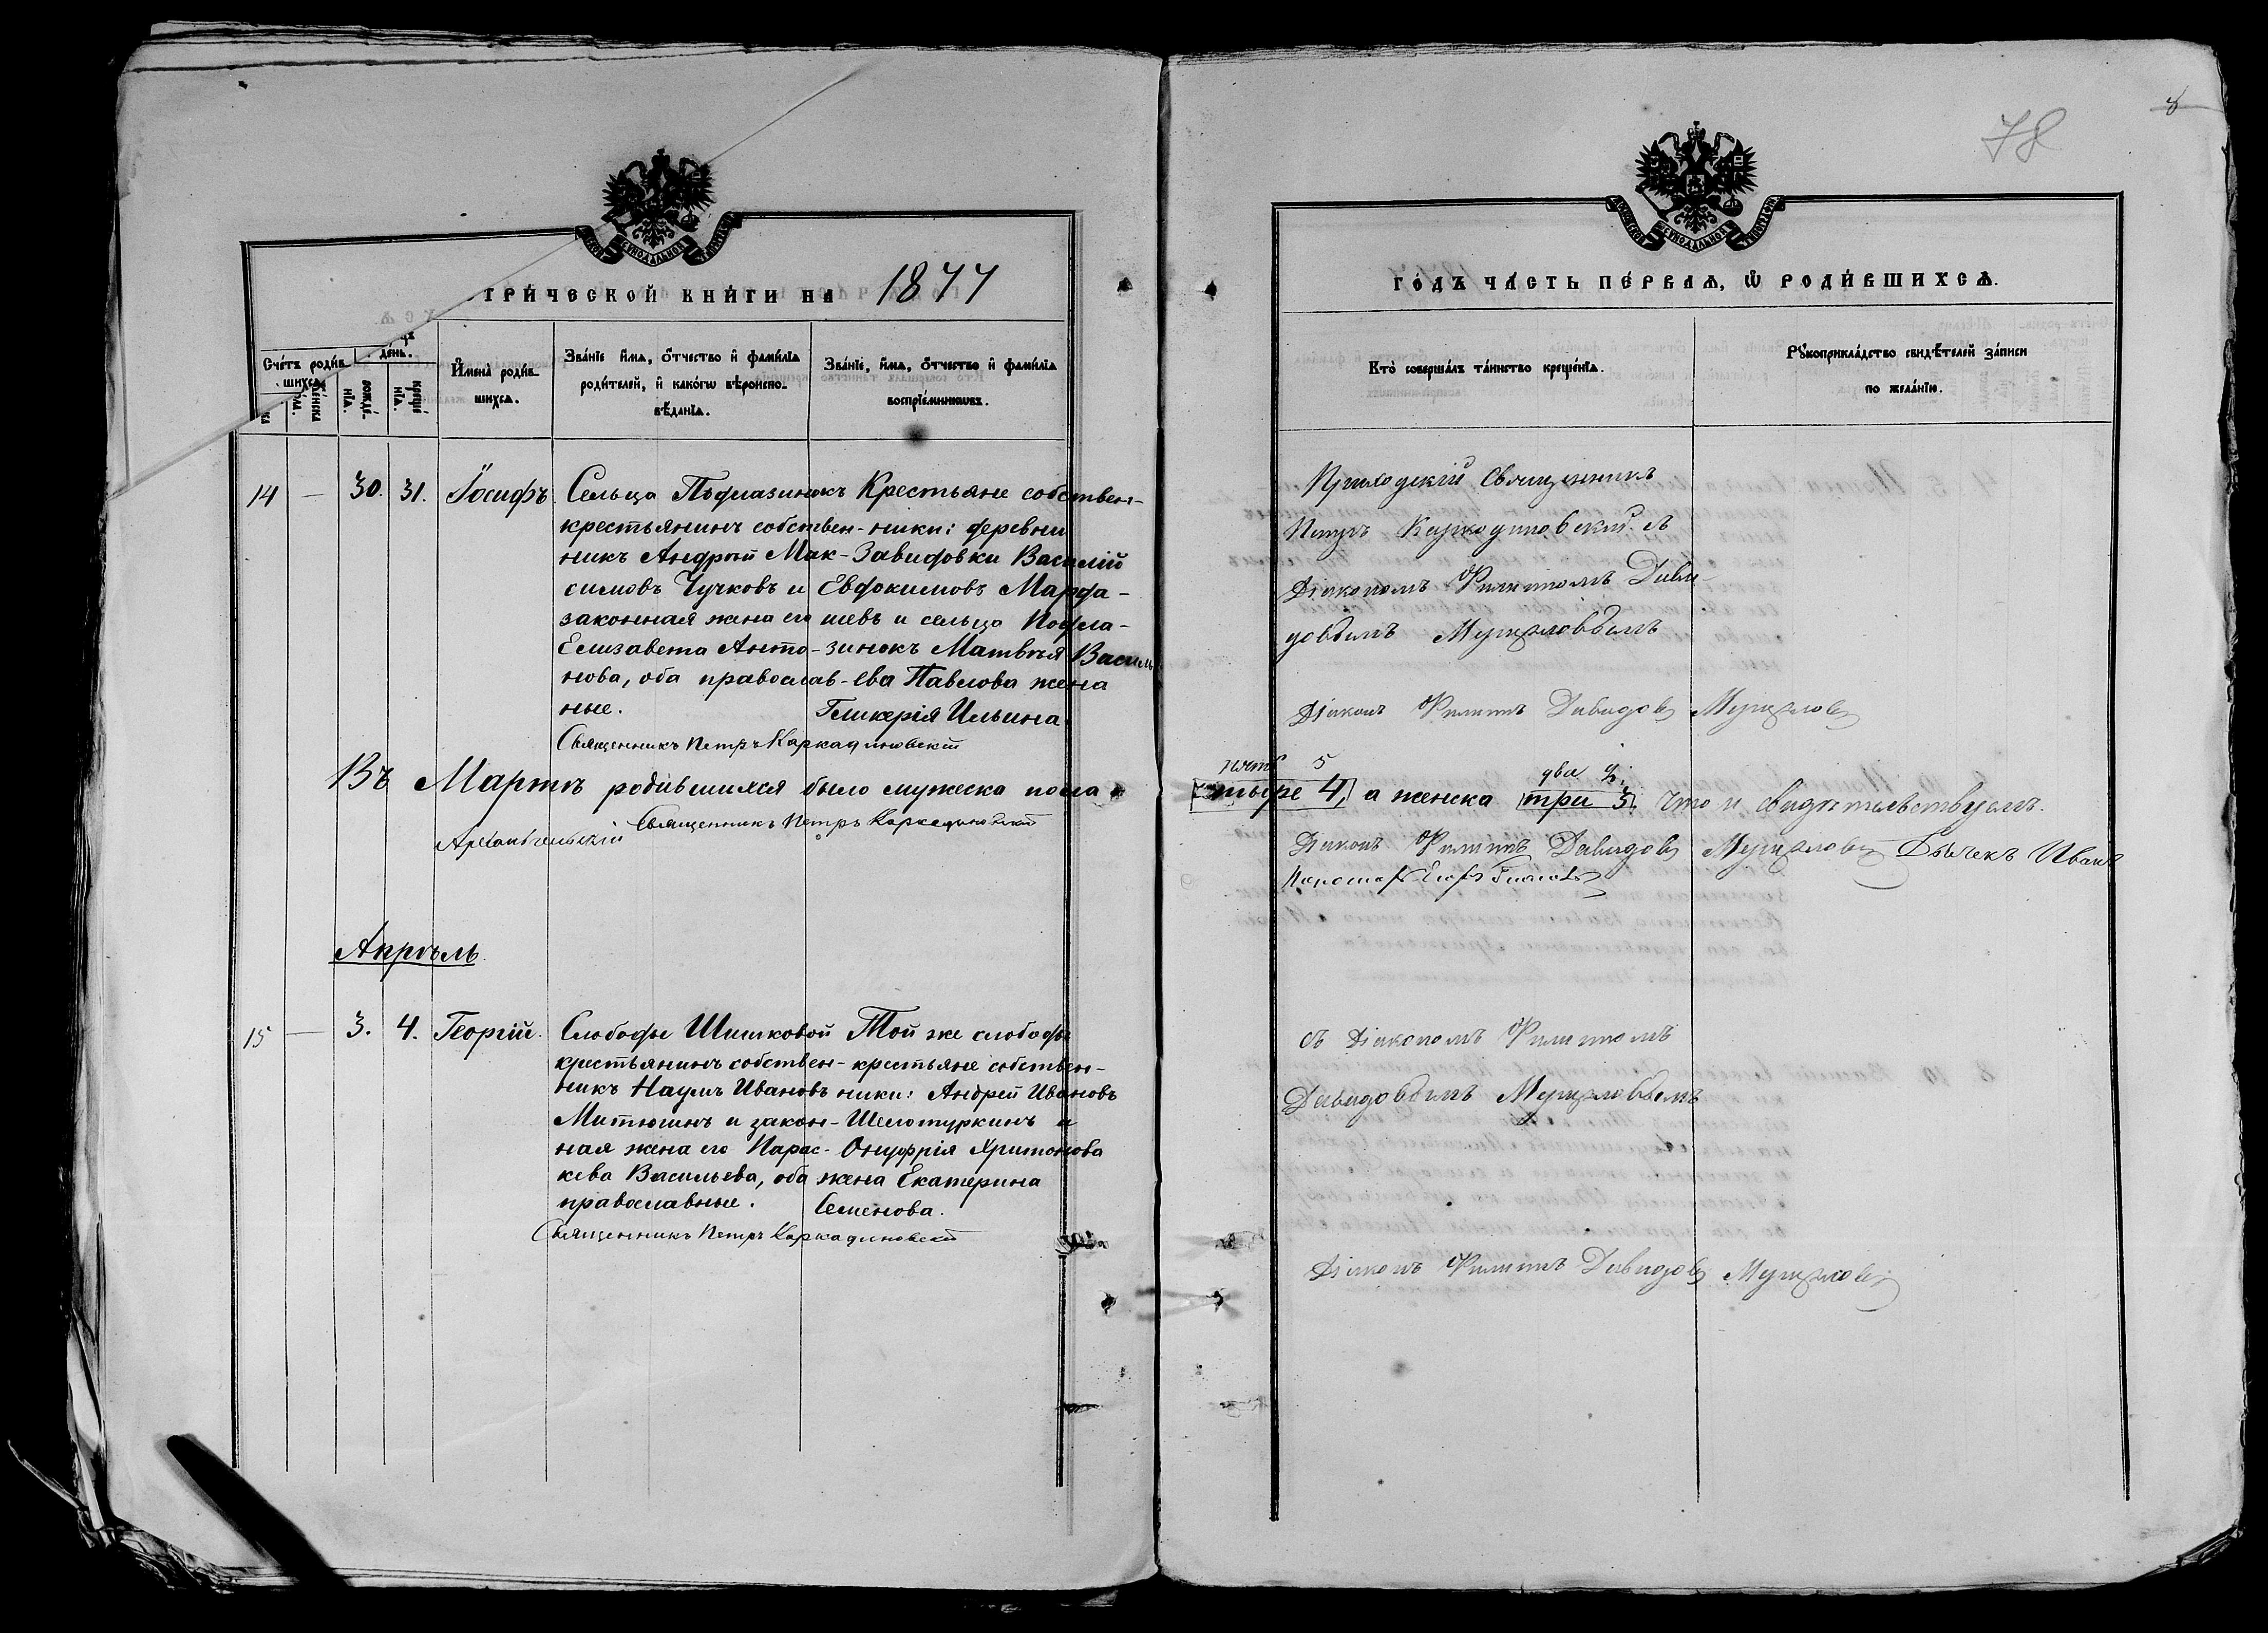 78
8
ТРИЧЕСКОЙ КНИГИ НА 1877
ГОДЪ ЧАСТЬ ПЕРВАЯ, Ѡ РОДИВШИХСЯ.
Счетъ родив-
шихся.
день.
рожде-
нїя.
креще-
нїя.
Имена родив-
шихся.
Званїе имя, отчество и фамилїя
родителей, и какогѡ вѣроиспо-
вѣданїя.
Званїе, имя, отчество и фамилїя
воспрїемниковъ.
Кто совершалъ таинство крещенїя.
Рукоприкладство свидѣтелей записи
по желанїю.
14 — 30. 31. Іосифъ.
Сельца Подлазинокъ
крестьянинъ собствен-
никъ Андрей Мак-
симовъ Чучковъ и
законная жена его
Елизавета Анто-
нова, оба православ-
ные.
Крестьяне собствен-
ники: деревни
Завидовки Василій
Евдокимовъ Марда-
шевъ и сельца Подла-
зинокъ Матвѣя Василь
ева Павлова жена
Гликерія Ильина.
Священникъ Петръ Каркадиновскій
Приходскій Священникъ
Петръ Каркадиновскій съ
Діакономъ Филиппомъ Дави-
довымъ
Діаконъ Филиппъ Давидовъ
Въ Мартѣ родившихся было мужеска пола
пять 5
четыре 4, а женска
два 2,
три 3, что и свидѣтельствуемъ.
Священникъ Петръ Каркадиновскій
Архангельскій
Діаконъ Филиппъ Давидовъ
Дьячекъ Иванъ
Апрѣль.
15 — 3. 4. Георгій.
Слободы Шишковой
крестьянинъ собствен-
никъ Наумъ Ивановъ
Митюшинъ и закон-
ная жена его Парас-
кева Васильева, оба
православные.
Той же слободы
крестьяне собствен-
ники: Андрей Ивановъ
Шелотуркинъ и
Онуфрія Хритонова
жена Екатерина
Семенова.
Священникъ Петръ Каркадиновскій
съ Діакономъ Филиппомъ
Давидовымъ
Діаконъ Филиппъ Давидовъ